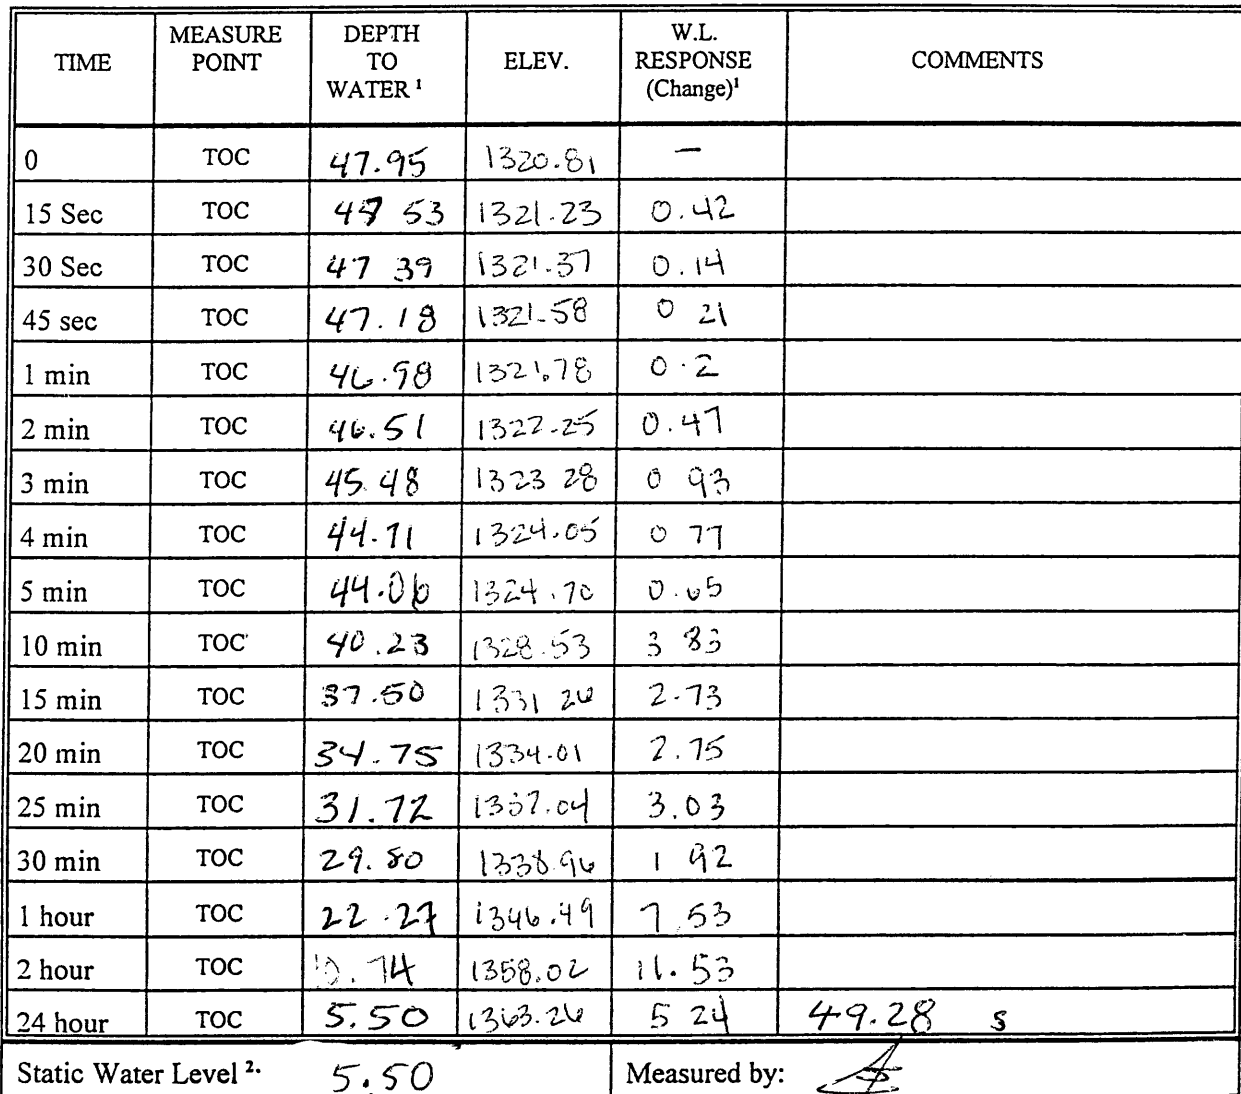 TIME MEASURE POINT DEPTH TO WATER ¹ ELEV. W.L. RESPONSE (Change)¹ COMMENTS
0 TOC 47.95 1320.81 —
15 Sec TOC 47 53 1321.23 0.42
30 Sec TOC 47 39 1321.37 0.14
45 sec TOC 47.18 1321.58 0 21
1 min TOC 46.98 1321.78 0.2
2 min TOC 46.51 1322.25 0.47
3 min TOC 45.48 1323 28 0 93
4 min TOC 44.71 1324.05 0 77
5 min TOC 44.06 1324.70 0.65
10 min TOC 40.23 1328.53 3 83
15 min TOC 37.50 1331 26 2.73
20 min TOC 34.75 1334.01 2.75
25 min TOC 31.72 1337.04 3.03
30 min TOC 29.80 1338.96 1 92
1 hour TOC 22.27 1346.49 7.53
2 hour TOC 10.74 1358.02 11.53
24 hour TOC 5.50 1363.26 5 24 49.28 s
Static Water Level ²· 5.50 Measured by: